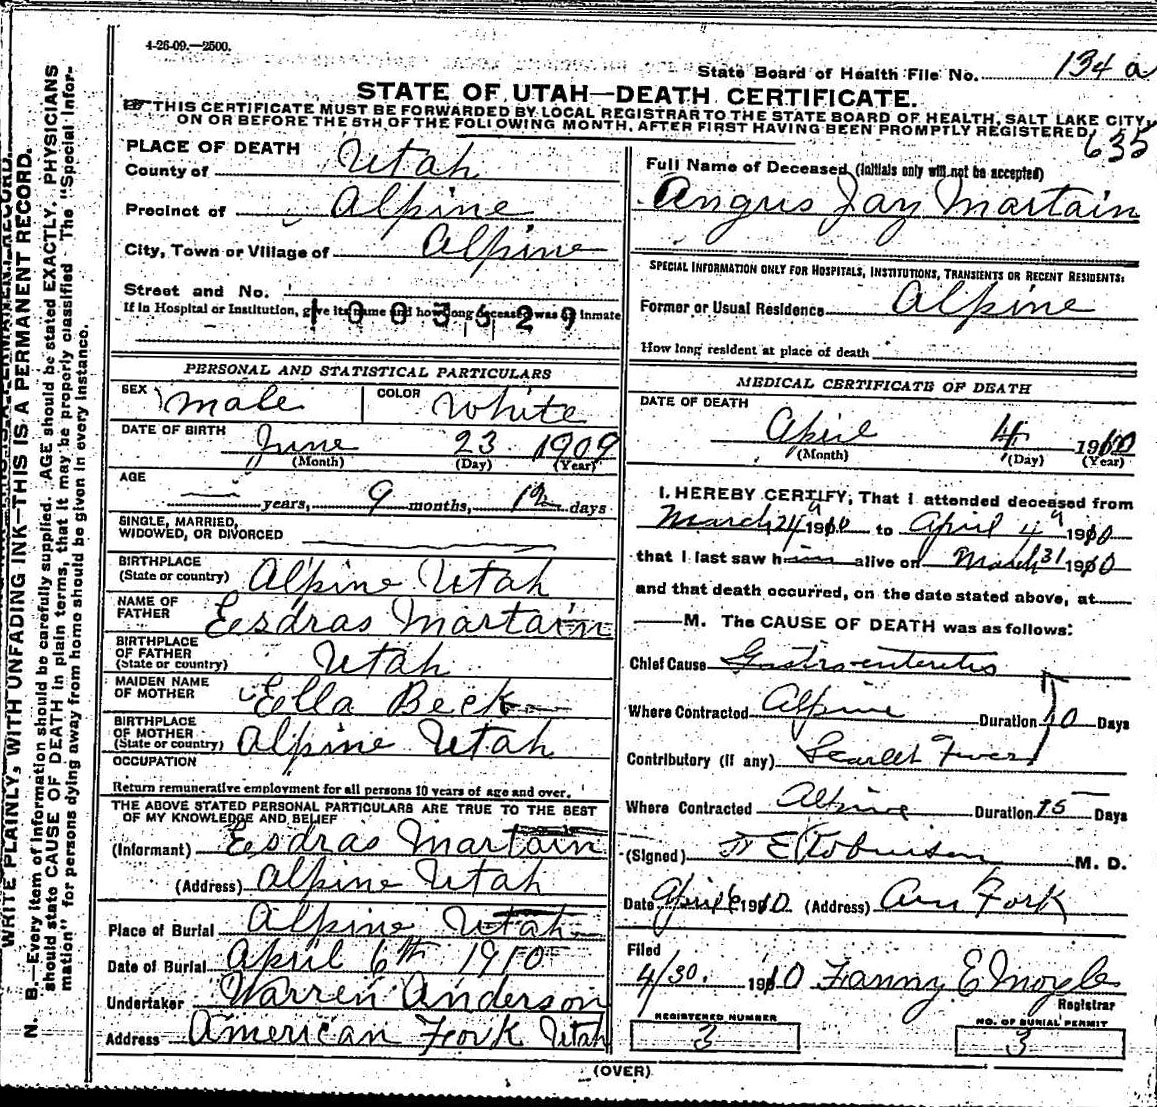 4-26-09.—2500.
State Board of Health File No. 134 a
STATE OF UTAH—DEATH CERTIFICATE.
THIS CERTIFICATE MUST BE FORWARDED BY LOCAL REGISTRAR TO THE STATE BOARD OF HEALTH, SALT LAKE CITY,
ON OR BEFORE THE 5TH OF THE FOLLOWING MONTH, AFTER FIRST HAVING BEEN PROMPTLY REGISTERED.
635
WRITE PLAINLY, WITH UNFADING INK—THIS IS A PERMANENT RECORD.
N. B.—Every item of information should be carefully supplied. AGE should be stated EXACTLY. PHYSICIANS
should state CAUSE OF DEATH in plain terms, that it may be properly classified. The "Special Infor-
mation" for persons dying away from home should be given in every instance.
PLACE OF DEATH
County of Utah
Precinct of Alpine
City, Town or Village of Alpine
Street and No.
If in Hospital or Institution, give its name and how long deceased was an inmate
1003529
PERSONAL AND STATISTICAL PARTICULARS
SEX Male COLOR White
DATE OF BIRTH June 23 1909
(Month) (Day) (Year)
AGE
— years, 9 months, 12 days
SINGLE, MARRIED,
WIDOWED, OR DIVORCED
BIRTHPLACE
(State or country) Alpine Utah
NAME OF
FATHER Esdras Martain
BIRTHPLACE
OF FATHER
(State or country) Utah
MAIDEN NAME
OF MOTHER Ella Beck
BIRTHPLACE
OF MOTHER
(State or country) Alpine Utah
OCCUPATION
Return remunerative employment for all persons 10 years of age and over.
THE ABOVE STATED PERSONAL PARTICULARS ARE TRUE TO THE BEST
OF MY KNOWLEDGE AND BELIEF
(Informant) Esdras Martain
(Address) Alpine Utah
Place of Burial Alpine Utah
Date of Burial April 6th 1910
Undertaker Warren Anderson
Address American Fork Utah
Full Name of Deceased, (initials only will not be accepted)
Angus Jay Martain
SPECIAL INFORMATION ONLY FOR HOSPITALS, INSTITUTIONS, TRANSIENTS OR RECENT RESIDENTS:
Former or Usual Residence Alpine
How long resident at place of death
MEDICAL CERTIFICATE OF DEATH
DATE OF DEATH
April 4 1910
(Month) (Day) (Year)
I, HEREBY CERTIFY, That I attended deceased from
March 24 1910 to April 4 1910
that I last saw him alive on March 31 1910
and that death occurred, on the date stated above, at
M. The CAUSE OF DEATH was as follows:
Chief Cause Gastro-enteretis
Where Contracted Alpine Duration 10 Days
Contributory (if any) Scarlet Fever
Where Contracted Alpine Duration 15 Days
(Signed) E Robinson M. D.
Date April 6 1910 (Address) Am Fork
Filed
4/30. 1910 Fanny E Moyle
Registrar
REGISTERED NUMBER
3
NO. OF BURIAL PERMIT
3
(OVER)